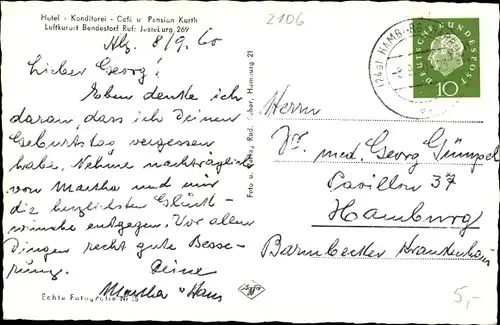 Hotel - Konditorei - Café u. Pension Kurth
Luftkurort Bendestorf Ruf: Jesteburg 269
8/9. 60
Lieber Georg!
Eben denke ich
daran, dass ich Deinen
Geburtstag vergessen
habe. Nehme nachträglich
von Martha und mir
die herzlichsten Glück-
wünsche entgegen. Vor allen
Dingen recht gute Besse-
rung.
Deine
Martha u Hans
Echte Fotografie Nr.
Foto u. Verlag Rud. Hamburg 21
2106
(24a) HAMB
DEUTSCHE BUNDESPOST
10
Herrn
Dr. med. Georg Gümpel
Pavillon 37
Hamburg
Barmbecker Krankenhaus
5,-